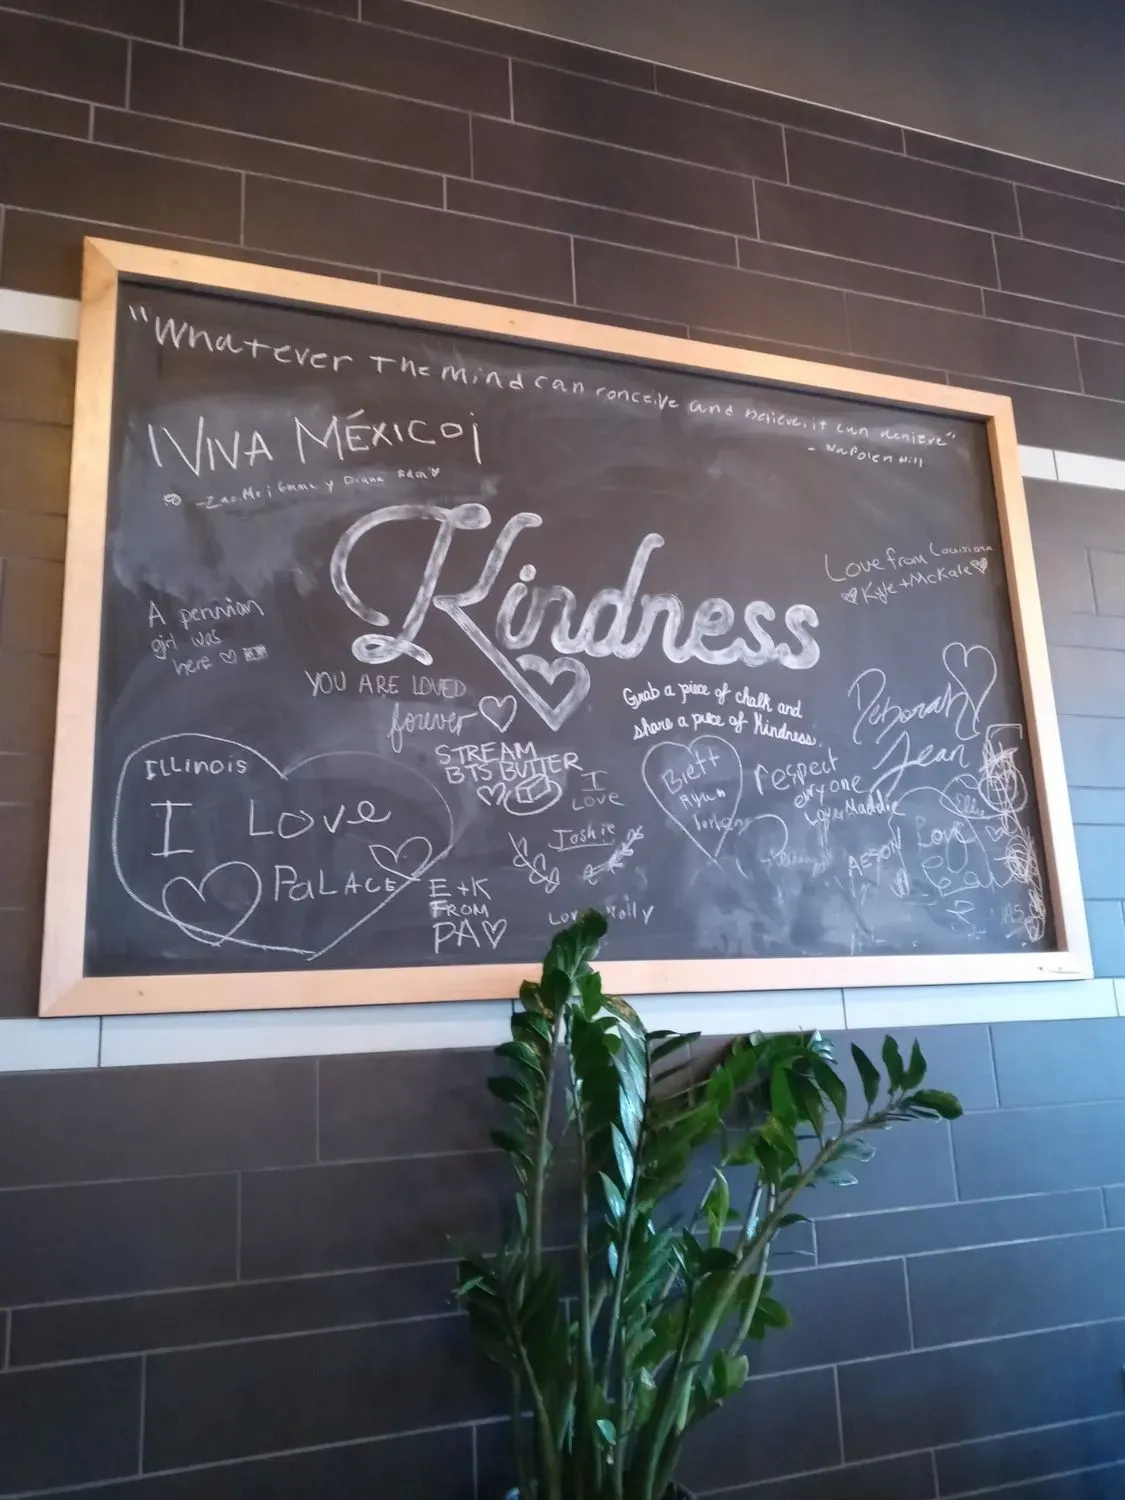 "Whatever the mind can conceive and believe, it can achieve"
- Napolen Hill
¡VIVA MÉXICO¡
Emma y Diana
Kindness
Love from Louisiana
Kyle + McKale
A peruvian
girl was
here
YOU ARE LOVED
forever
Grab a piece of chalk and
share a piece of Kindness.
Deborah
Jean
ILLINOIS
I LOVE
PALACE
STREAM
BTS BUTTER
I
LOVE
Joshie
Brett
Ryan
respect
eryone
Love Maddie
AESON
Ellie
Love
E + K
FROM
PA
Love Molly